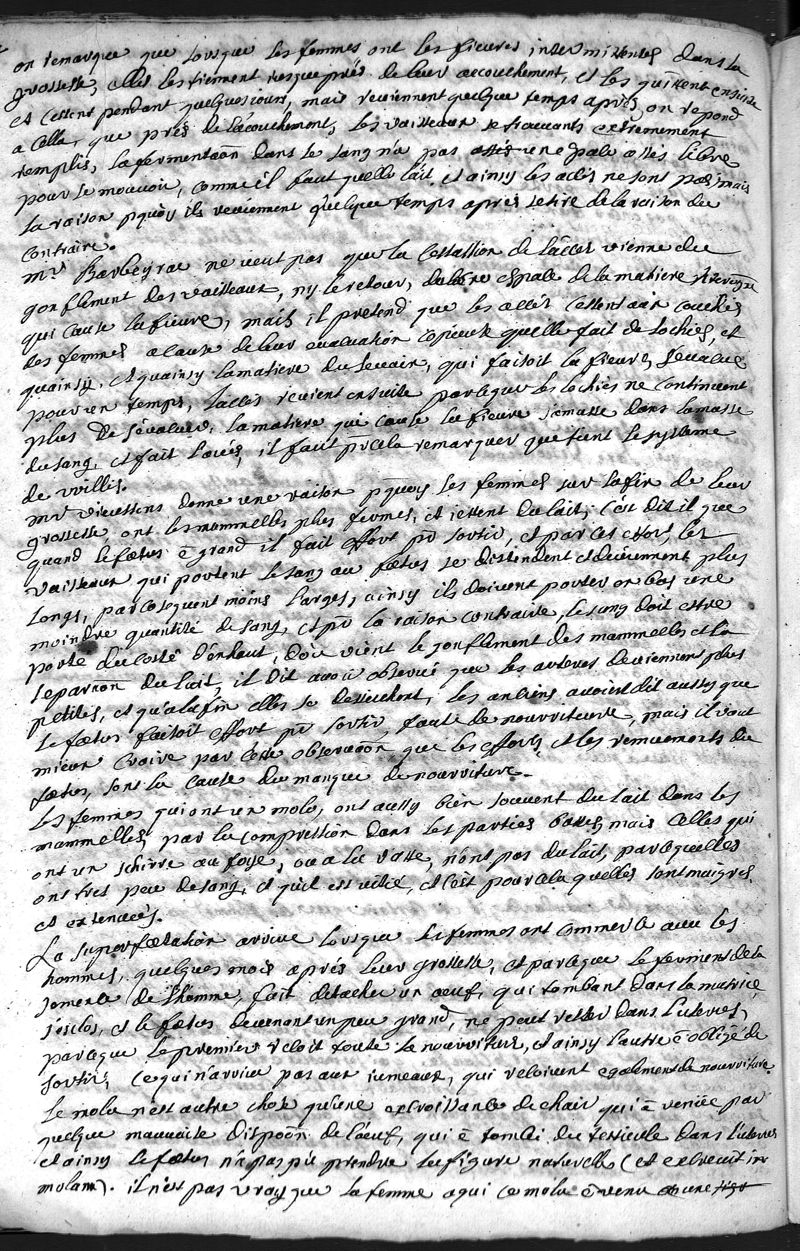 on remarque que lorsque les femmes ont les fieures intermittentes dans la
grossesse, elles les tiennent jusque prés de leur accouchement, et les quittent ensuite
et cessent pendant quelques jours, mais reviennent quelque temps aprés, on repond
a cella, que prés de l'acouchement, les vaisseaux se trouvants extremement
remplis, la fermentãon dans le sang n'a pas une espace assés libre
pour se mouvoir, comme il faut quelle fait, et ainsy les accés ne sont pas, mais
la raison pquoy ils reviennent quelque temps aprés se tire de la raison du
contraire.
mr. Barbeyrac ne veut pas que la cessassion de l'accés vienne du
gonflement des vaisseaux, ny le retour, de la matiere
qui cause la fieure, mais il pretend que les accés cessent aux couches
des femmes a cause de leur evacuation copieuse quelle fait de lochies, et
quainsy, et quainsy la matiere du levain, qui faisoit la fieure, s'evacue
pour un temps, l'accés revient ensuite parceque les lochies ne continuent
plus de s'évacuer, la matiere qui cause la fieure s'amasse dans la masse
du sang, et fait l'accés, il faut pr cela remarquer que tient le systeme
de willis.
mr. vieussens donne une raison pquoy les femmes sur la fin de leur
grossesse, ont les mammelles plus fermes, et jettent du lait; c'est dit il que
quand le fœtus ē grand il fait effort pr sortir, et par ces effors, les
vaisseaux qui portent le sang au fœtus se distendent et deviennent plus
longs, par cosequent moins larges, ainsy ils doivent porter en bas une
moindre quantité de sang, et pr la raison contraire, le sang doit estre
porté du costé d'enhaut, d'ou vient le gonflement des mammelles et la
separãon du lait, il dit avoir observé que les arteres deviennent plus
petites, et qu'a la fin elles se dessechent, les anciens avoient dit aussy que
le fœtus faisoit effort pr sortir faute de nourriture, mais il vaut
mieux croire par cette observãon que les efforts et les remuements du
fœtus, sont la cause du manque de nourriture.
les femmes qui ont un mole, ont aussy bien souvent du lait dans les
mammelles, par la compression dans les parties basses, mais celles qui
ont un schirre au foye, ou a la ratte, n'ont pas du lait, parcequelles
ont tres peu de sang, et qu'il est vitié, et c'est pour cela quelles sont maigres,
et extenuées.
La superfœtation arrive lorsque les femmes ont commerce avec les
hommes, quelques mois aprés leur grossesse, et parceque le ferment de la
semence de l'homme, fait detacher un œuf, qui tombant dans la matrice
s'esclos, et le fœtus devenant un peu grand, ne peut rester dans l'uterus,
parceque le premier reçoit toute la nourriture, et ainsy l'autre ē obligé de
sortir, ce qui n'arrive pas aux jumeaux, qui reçoivent egalement de nourriture.
le mole n'est autre chose qu'une excroissance de chair qui ē venüe par
quelque mauvaise dispoõn de l'œuf, qui ē tombé du testicule dans l'uterus
et ainsy le fœtus n'a pas pû prendre la figure naturelle (et excrevit in
molam). il n'est pas vray que la femme a qui ce mole ē venu